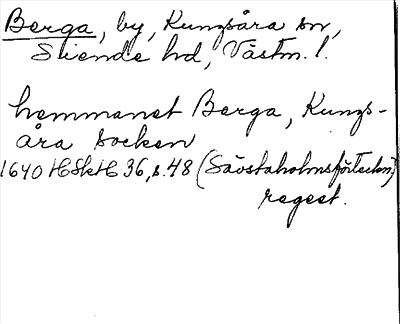 Berga, by, Kungsåra sn,
Siende hd, Västm. l.
hemmanet Berga, Kungs-
åra socken
1640 HSkH 36, s. 48 (Sävstaholmsförteckn)
regest.